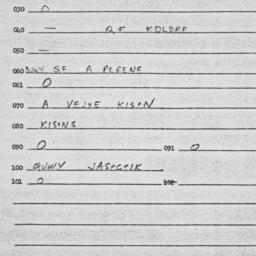 030 O
040 — Q,F KOLDRE
050 —
060 QUWY QF A PERENE
061 O
070 A VEJXE KIS+N
080 KIS+NS
090 O 091 O
100 QUWY JAS+G+IK
101 O 102